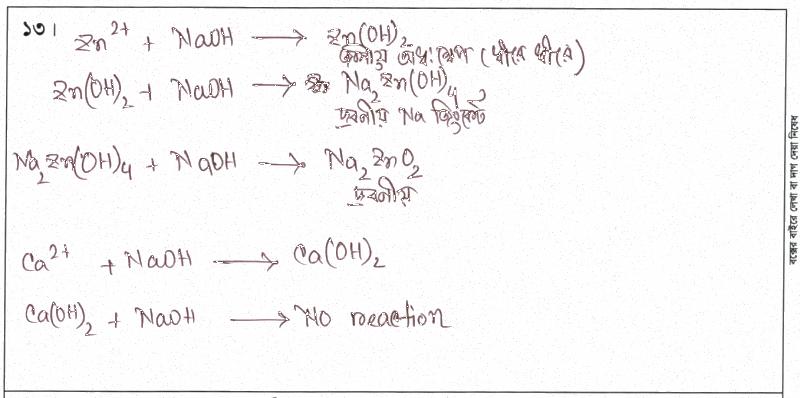 ১৩। Zn²⁺ + NaOH → Zn(OH)₂
অধঃক্ষেপ (ধীরে ধীরে)
Zn(OH)₂ + NaOH → Na₂Zn(OH)₄
দ্রবনীয় Na জিংকেট
Na₂Zn(OH)₄ + NaOH → Na₂ZnO₂
দ্রবনীয়
Ca²⁺ + NaOH → Ca(OH)₂
Ca(OH)₂ + NaOH → No reaction
বক্সের বাইরে লেখা বা দাগ দেয়া নিষেধ